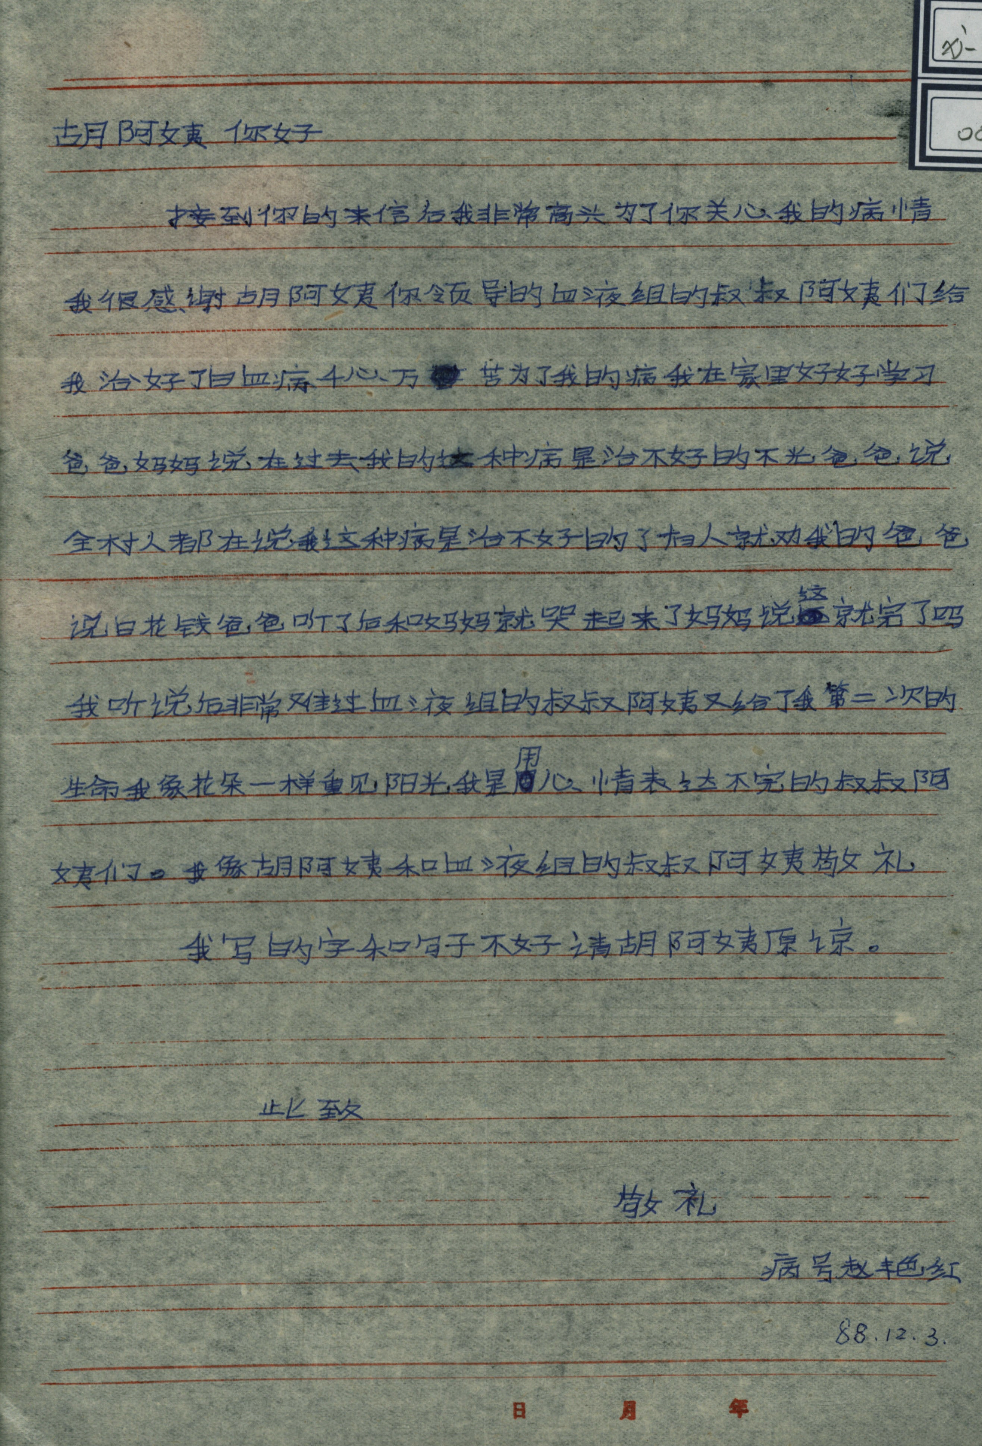 胡阿姨 你好
接到你的来信后我非常高兴为了你关心我的病情
我很感谢胡阿姨你领导的血液组的叔叔阿姨们给
我治好了白血病千心万苦为了我的病我在家里好好学习
爸爸妈妈说在过去我的这种病是治不好的不光爸爸说
全村人都在说我这种病是治不好的了有人就劝我的爸爸
说白花钱爸爸听了后和妈妈就哭起来了妈妈说这就完了吗
我听说后非常难过血液组的叔叔阿姨又给了我第二次的
生命我象花朵一样重见阳光我是用心情表达不完的叔叔阿
姨们。我像胡阿姨和血液组的叔叔阿姨敬礼
我写的字和句子不好请胡阿姨原谅。
此致
敬礼
病号赵艳红
88.12.3.
日 月 年